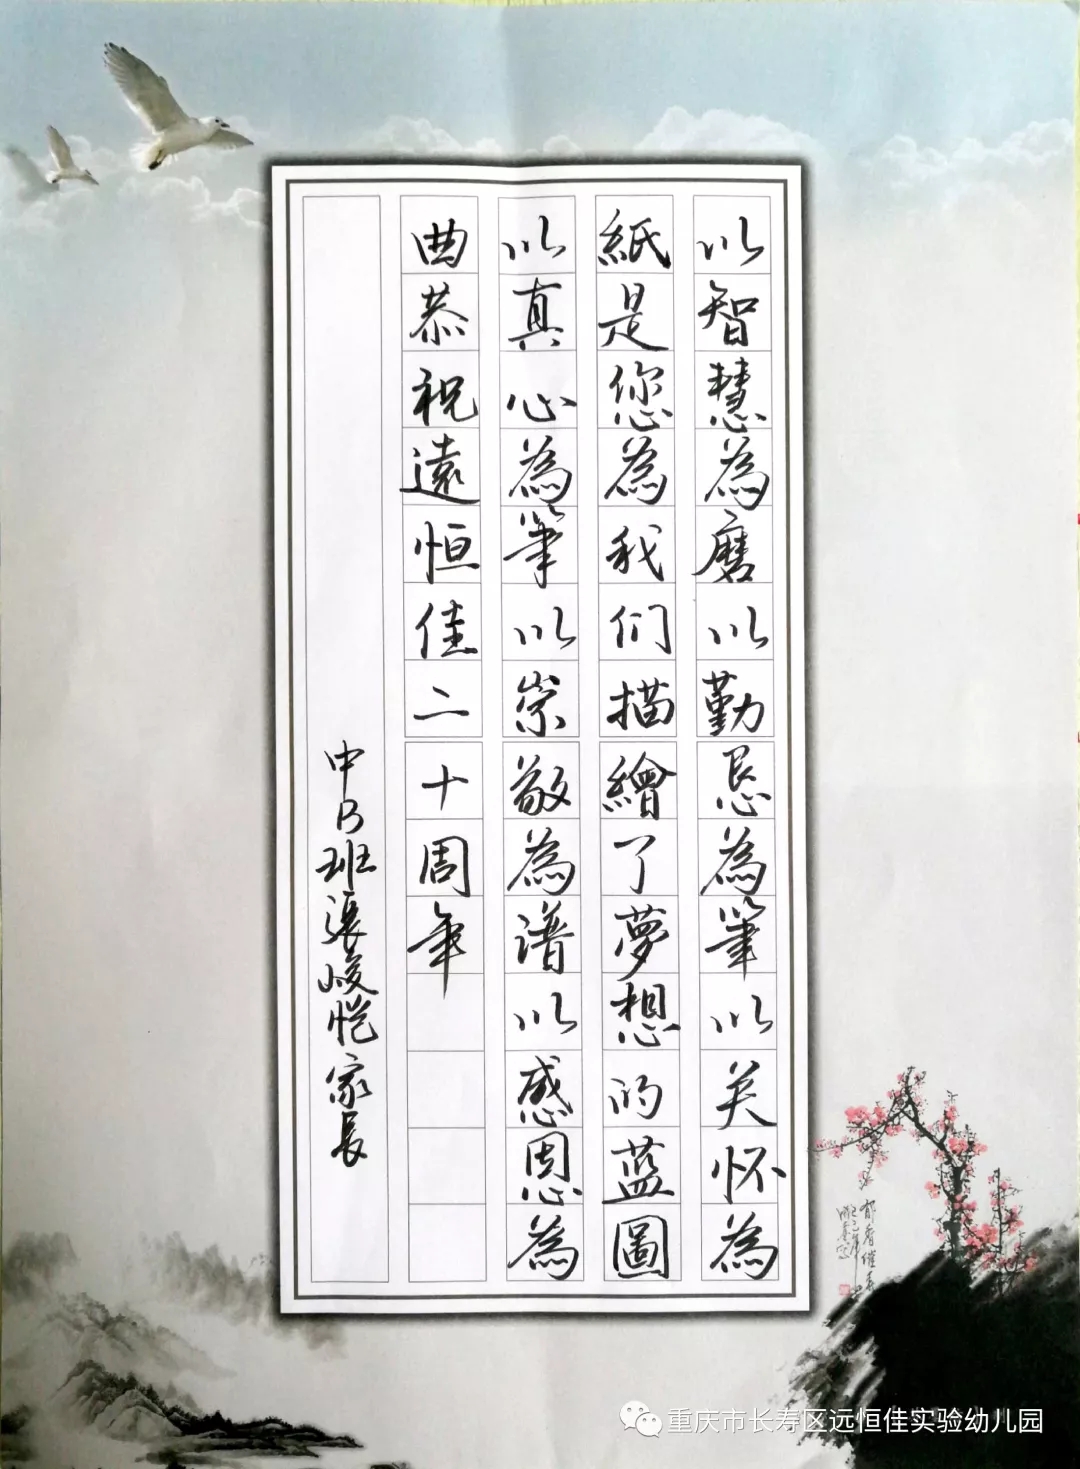 以智慧為磨以勤恳為筆以关怀為
紙是您為我们描繪了夢想的蓝圖
以真心為筆以崇敬為谱以感恩為
曲恭祝遠恒佳二十周年
中B班張峻恺家長
重庆市长寿区远恒佳实验幼儿园